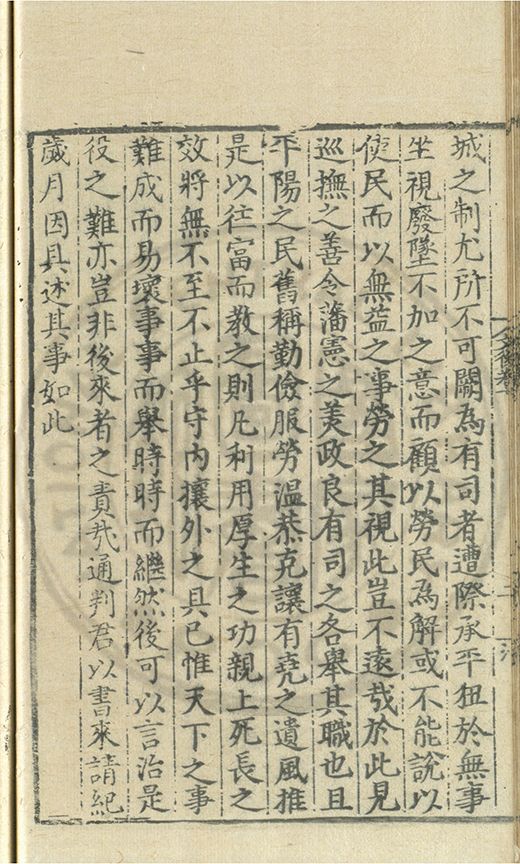 城之制尤所不可闕為有司者遭際承平狃於無事
坐視廢墜不加之意而顧以勞民為解或不能說以
使民而以無益之事勞之其視此豈不遠哉於此見
巡撫之善令藩憲之美政良有司之各舉其職也且
平陽之民舊稱勤儉服勞温恭克讓有堯之遺風推
是以往富而教之則凡利用厚生之功親上死長之
效將無不至不止乎守内攘外之具已惟天下之事
難成而易壞事事而舉時時而繼然後可以言治是
役之難亦豈非後來者之責哉通判君以書來請紀
歲月因具述其事如此